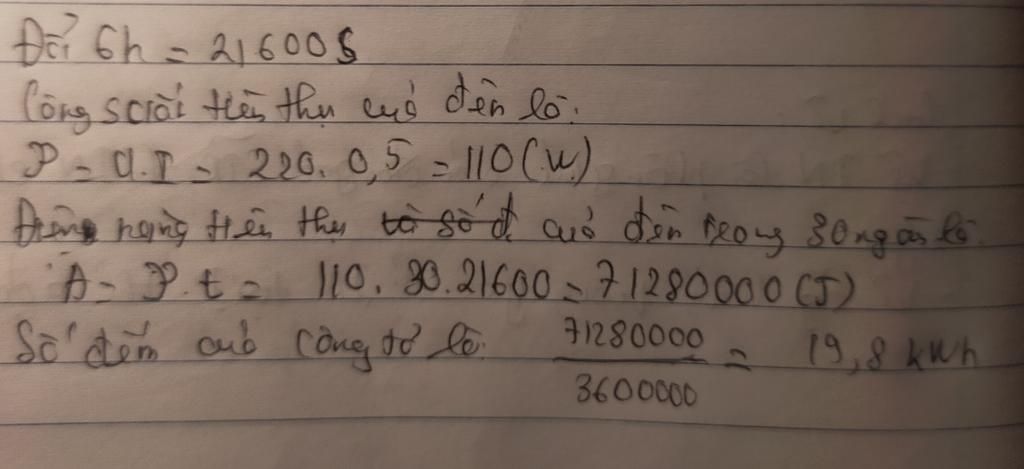 Đổi 6h = 21600s
Công suất tiêu thụ của đèn là:
P = U.I = 220. 0,5 = 110(W)
Điện năng tiêu thụ của đèn trong 30 ngày là
A = P.t = 110. 30. 21600 = 71280000 (J)
Số đếm của công tơ là: 71280000 / 3600000 = 19,8 kWh